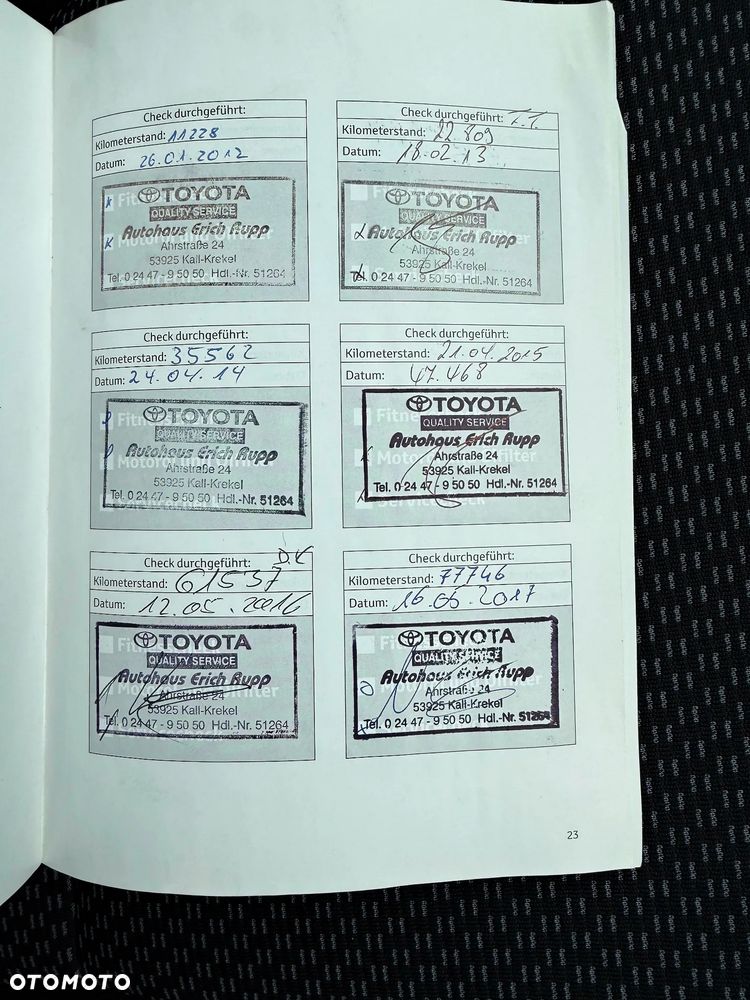 Check durchgeführt:
Kilometerstand: 11228
Datum: 26.01.2012
TOYOTA
QUALITY SERVICE
Autohaus Erich Rupp
Ahrstraße 24
53925 Kall-Krekel
Tel. 0 24 47 - 9 50 50 Hdl.-Nr. 51264
Check durchgeführt:
Kilometerstand: 22 809
Datum: 18.02.13
TOYOTA
QUALITY SERVICE
Autohaus Erich Rupp
Ahrstraße 24
53925 Kall-Krekel
Tel. 0 24 47 - 9 50 50 Hdl.-Nr. 51264
Check durchgeführt:
Kilometerstand: 35562
Datum: 24.04.14
TOYOTA
QUALITY SERVICE
Autohaus Erich Rupp
Ahrstraße 24
53925 Kall-Krekel
Tel. 0 24 47 - 9 50 50 Hdl.-Nr. 51264
Check durchgeführt:
Kilometerstand: 21.04.2015
Datum: 47.468
TOYOTA
QUALITY SERVICE
Autohaus Erich Rupp
Ahrstraße 24
53925 Kall-Krekel
Tel. 0 24 47 - 9 50 50 Hdl.-Nr. 51264
Check durchgeführt:
Kilometerstand: 61537
Datum: 12.05.2016
TOYOTA
QUALITY SERVICE
Autohaus Erich Rupp
Ahrstraße 24
53925 Kall-Krekel
Tel. 0 24 47 - 9 50 50 Hdl.-Nr. 51264
Check durchgeführt:
Kilometerstand: 77746
Datum: 16.05.2017
TOYOTA
QUALITY SERVICE
Autohaus Erich Rupp
Ahrstraße 24
53925 Kall-Krekel
Tel. 0 24 47 - 9 50 50 Hdl.-Nr. 51264
23
OTOMOTO